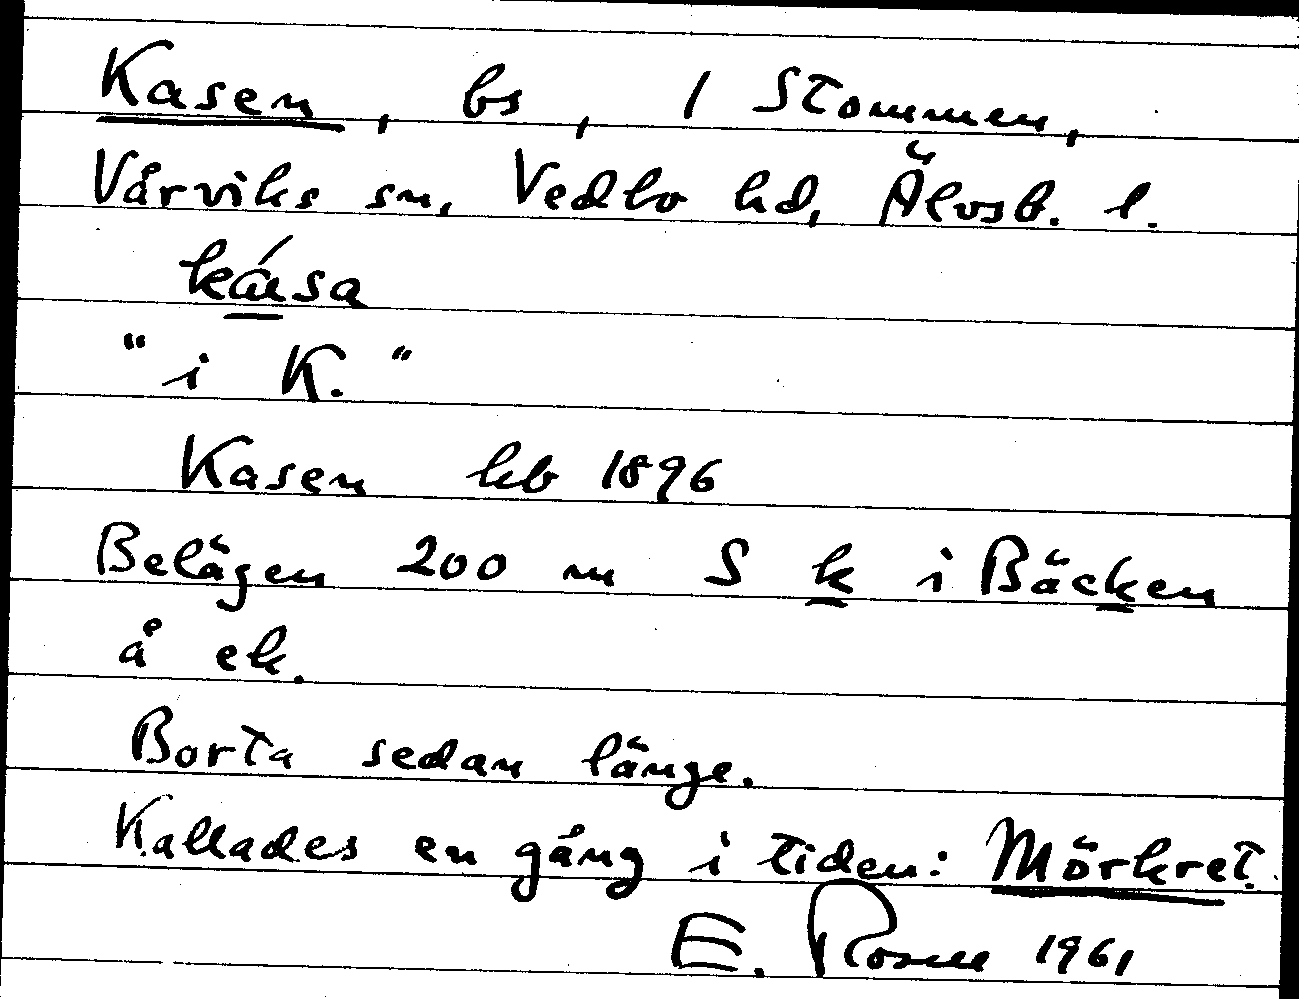 Kasen, bs, 1 Stommen,
Vårviks sn, Vedbo hd, Älvsb. l.
ká̱sa
"i K."
Kasen kb 1896
Belägen 200 m S k i Bäcken
å ek.
Borta sedan länge.
Kallades en gång i tiden: Mörkret.
E. Rosell 1961